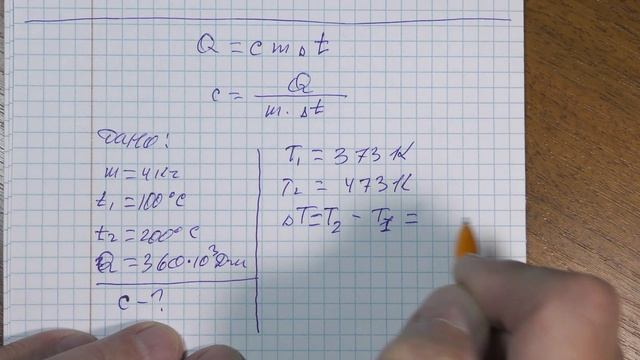 Q = c m Δt
c = Q / m · Δt
Дано:
m = 4 кг
t₁ = 100°C
t₂ = 200°C
Q = 360·10³ Дж
c - ?
T₁ = 373 K
T₂ = 473 K
ΔT = T₂ - T₁ =